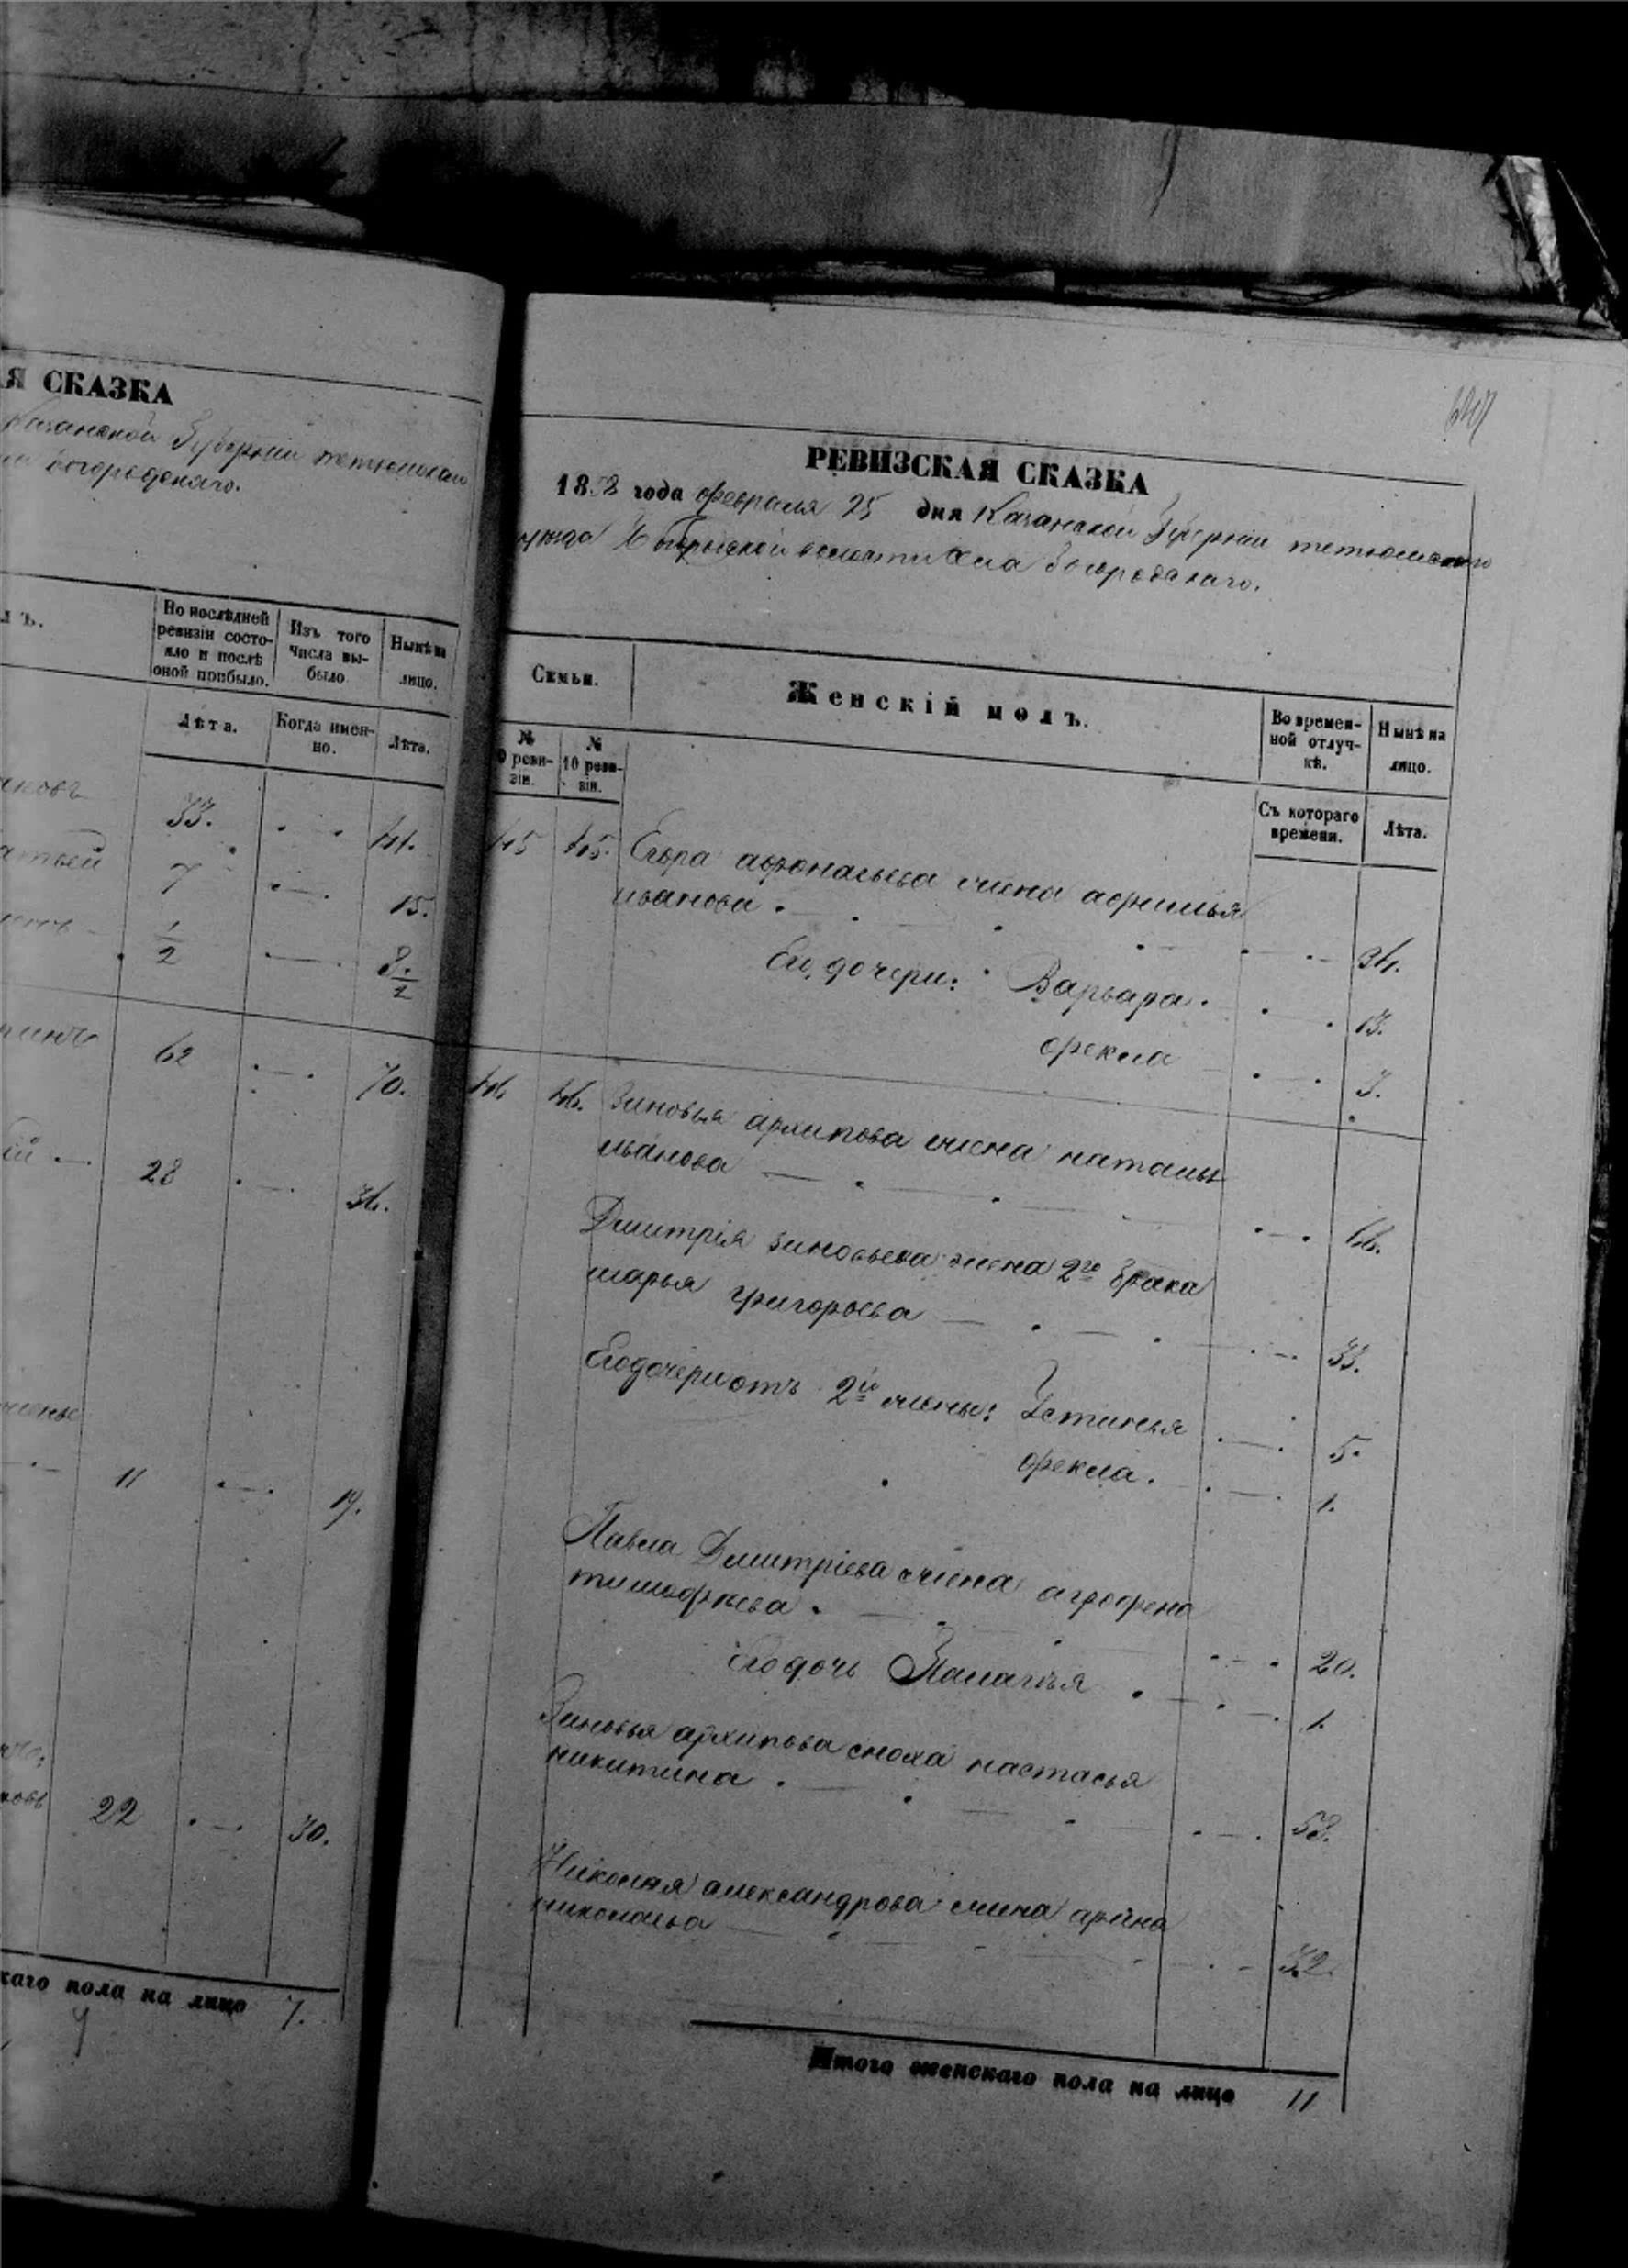 Я СКАЗКА
Казанской Губерніи тетюшскаго
богородскаго.
лъ.
По послѣдней ревизіи состояло и послѣ оной прибыло.
Изъ того числа выбыло
Нынѣ на лицо.
Лѣта.
Когда именно.
Лѣта.
33. 41.
7 15.
1/2 8 1/2
62 70.
28 36.
11 19.
22 30.
каго пола на лицо 7.
РЕВИЗСКАЯ СКАЗКА
1858 года февраля 25 дня Казанской Губерніи тетюшскаго
уѣзда волости Села Богородскаго.
Семьи.
Женскій полъ.
Во временной отлучкѣ.
Нынѣ на лицо.
№ 9 ревизіи.
№ 10 ревизіи.
Съ котораго времени.
Лѣта.
45 45. Егора афонасьева жена афимья
иванова 34.
Его дочери: Варвара 13.
фекла 3.
46 46. Зиновья архипова жена наталья
иванова 66.
Дмитрія зиновьева жена 2го брака
марья григорьева 33.
Его дочери отъ 2й жены: Устинья 5.
фекла. 1.
Павла Дмитріева жена аграфена
тимофѣева 20.
Его дочь Палагѣя 1.
Зиновья архипова сноха настасья
никитина 53.
Николая александрова жена арина
николаева 32.
Итого женскаго пола на лицо 11